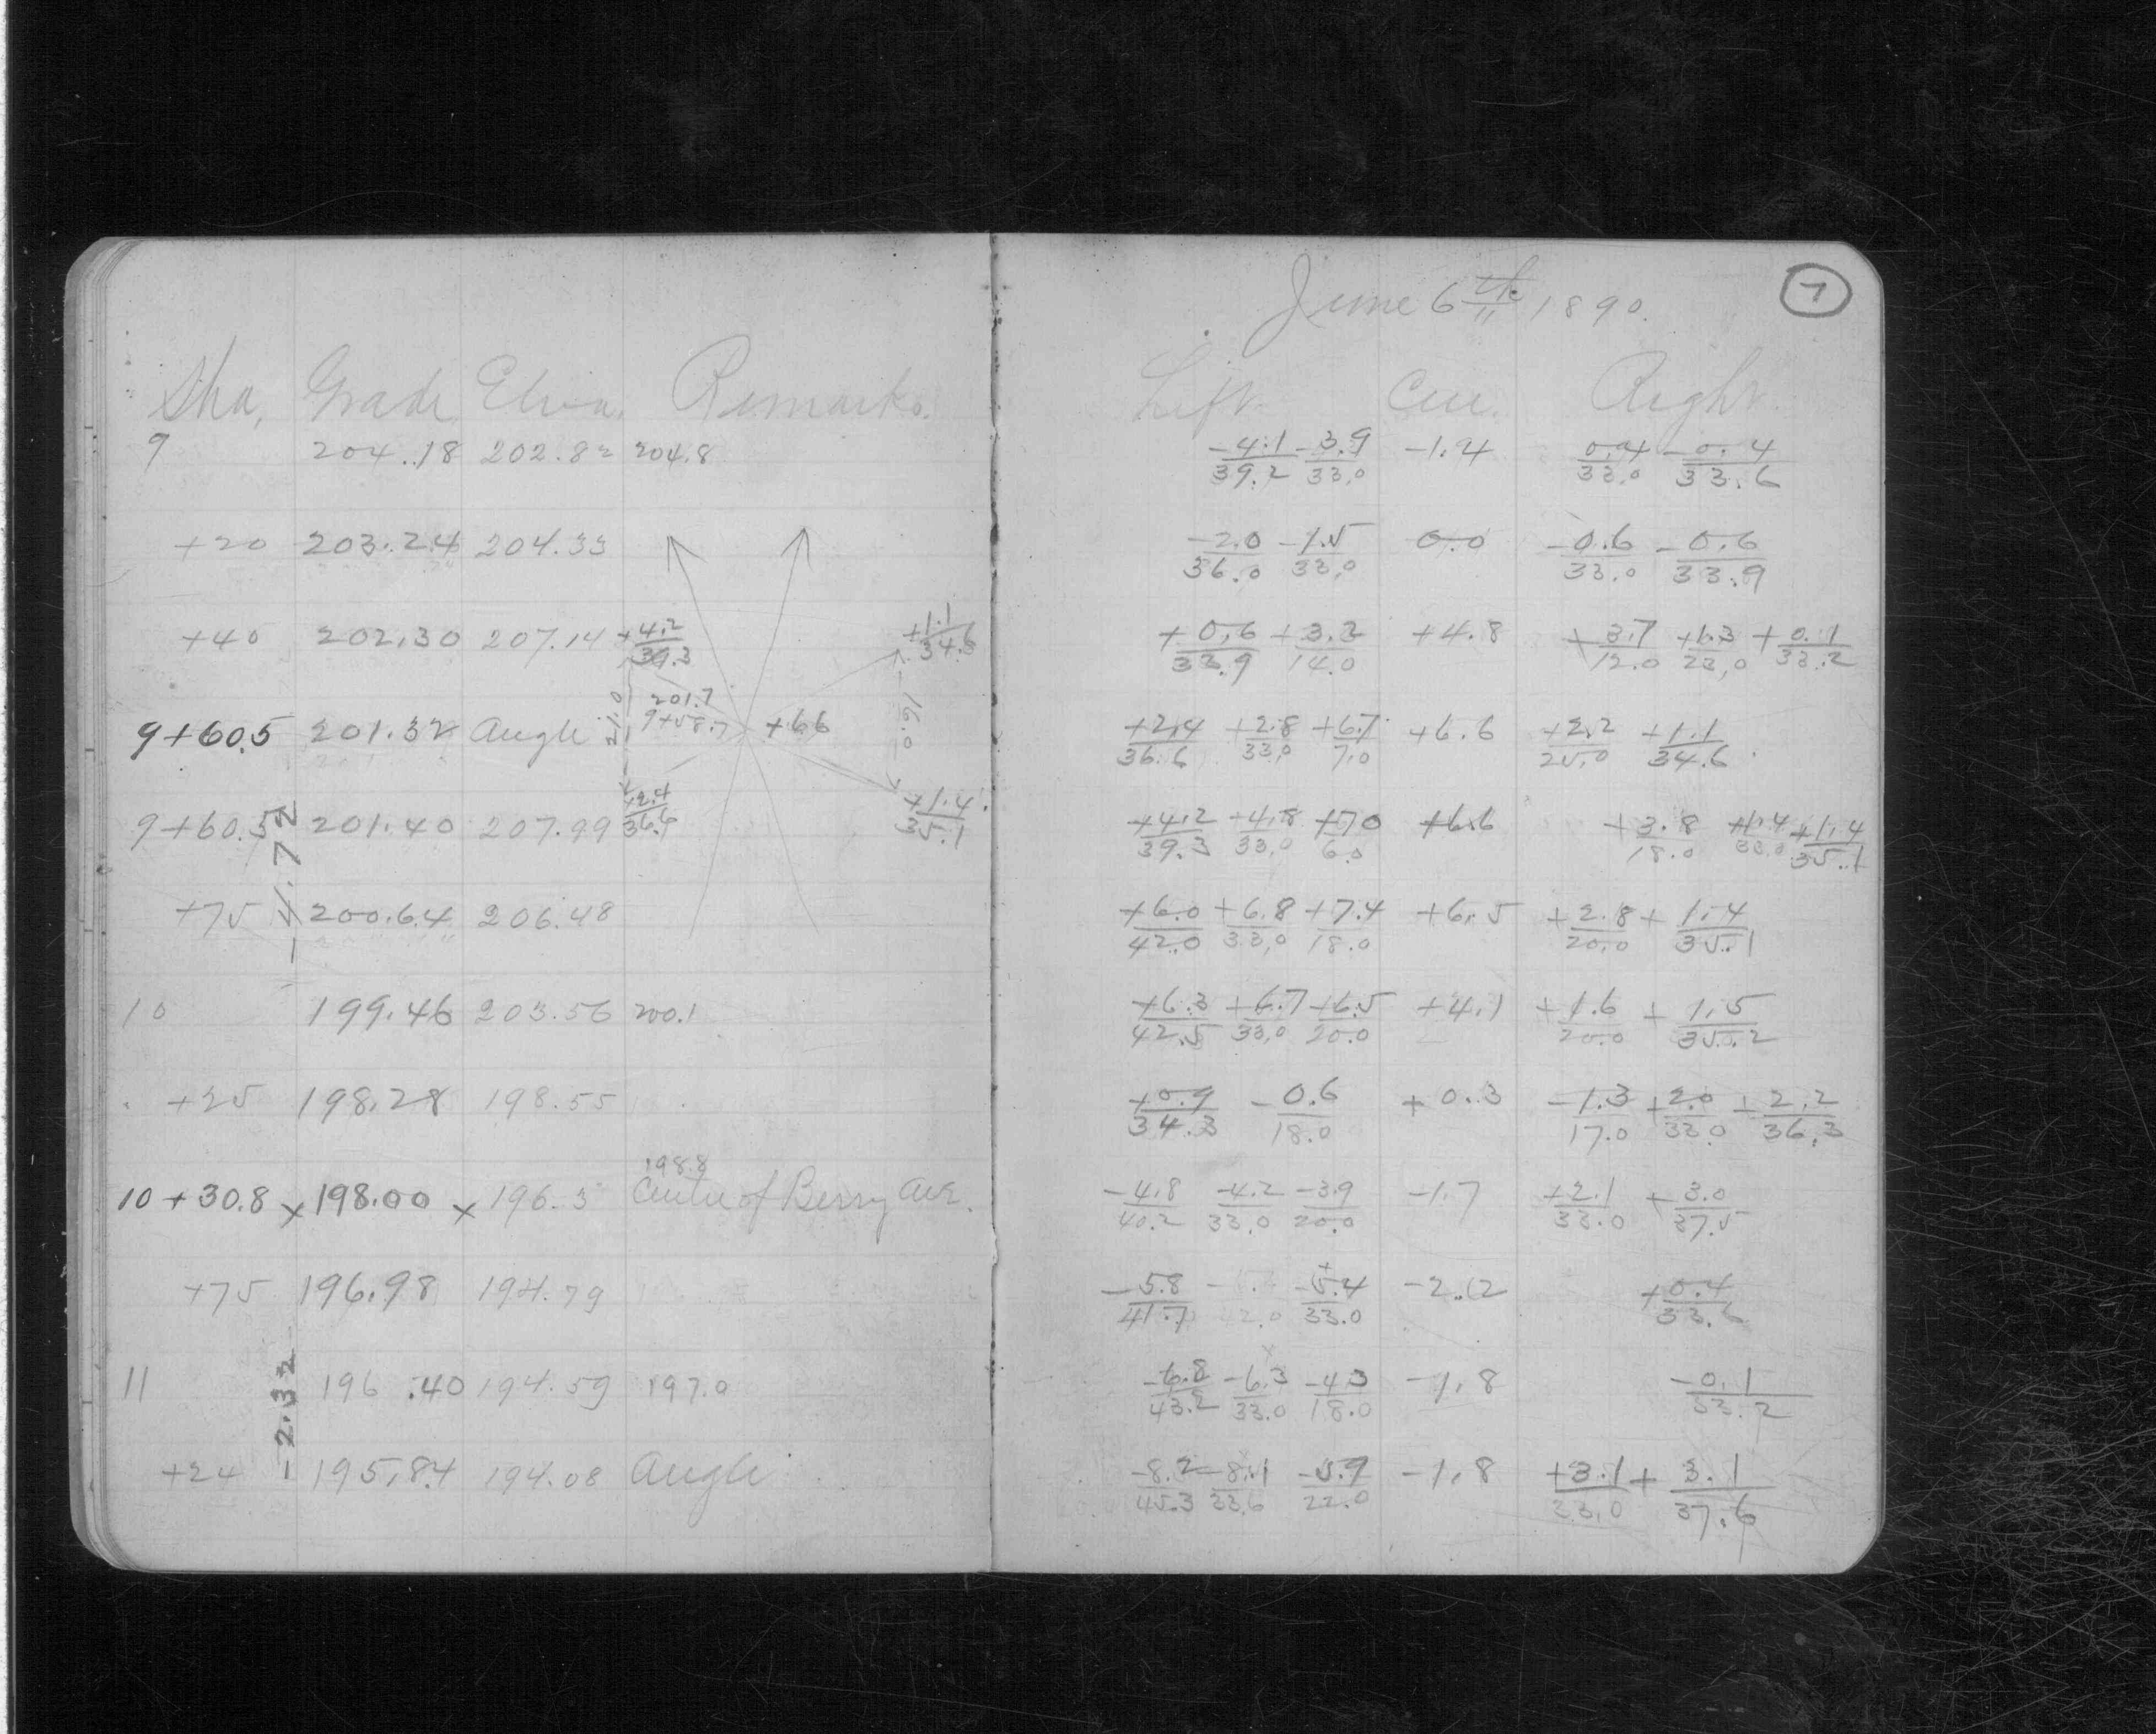 June 6th 1890.
7
Sta. Grade Eleva. Remarks. Left. Cen. Right.
9 204.18 202.82 204.8 -4.1/39.2 -3.9/33.0 -1.4 0.4/33.0 -0.4/33.6
+20 203.24 204.33 -2.0/36.0 -1.5/33.0 0.0 -0.6/33.0 -0.6/33.9
+40 202.30 207.14 +4.2/39.3 +1.1/34.6 +0.6/33.9 +3.2/14.0 +4.8 +3.7/12.0 +1.3/23.0 +0.1/33.2
9+60.5 201.32 Angle 21.0 201.7 9+58.7 +66 16.0 +2.4/36.6 +2.8/33.0 +6.7/7.0 +6.6 +2.2/25.0 +1.1/34.6
9+60.5 201.40 207.99 +2.4/36.6 +1.4/35.1 +4.2/39.3 +4.8/33.0 +7.0/6.0 +6.6 +3.8/18.0 +1.4/33.0 +1.4/35.1
-4.72
+75 200.64 206.48 +6.0/42.0 +6.8/33.0 +7.4/18.0 +6.5 +2.8/20.0 +1.4/35.1
10 199.46 203.56 200.1 +6.3/42.5 +6.7/33.0 +6.5/20.0 +4.1 +1.6/20.0 +1.5/35.2
+25 198.28 198.55 +0.9/34.3 -0.6/18.0 +0.3 -1.3/17.0 +2.0/33.0 +2.2/36.3
10+30.8 x 198.00 x 196.3 198.8 Centre of Berry Ave. -4.8/40.2 -4.2/33.0 -3.9/20.0 -1.7 +2.1/33.0 +3.0/37.5
+75 196.98 194.79 -5.8/41.7 -5.4/33.0 -2.2 +0.4/33.6
11 196.40 194.59 197.0 -6.8/43.2 -6.3/33.0 -4.3/18.0 -1.8 -0.1/33.2
-2.32
+24 195.84 194.08 Angle -8.2/45.3 -8.1/33.6 -5.9/22.0 -1.8 +3.1/23.0 +3.1/37.6